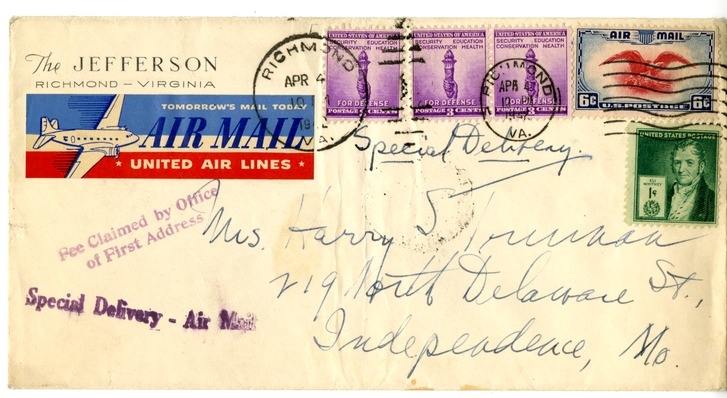 The JEFFERSON
RICHMOND – VIRGINIA
TOMORROW'S MAIL TODAY
AIR MAIL
* UNITED AIR LINES *
RICHMOND
APR 4
VA.
UNITED STATES OF AMERICA
SECURITY EDUCATION
CONSERVATION HEALTH
FOR DEFENSE
POSTAGE 3 CENTS
UNITED STATES OF AMERICA
SECURITY EDUCATION
CONSERVATION HEALTH
FOR DEFENSE
POSTAGE 3 CENTS
UNITED STATES OF AMERICA
SECURITY EDUCATION
CONSERVATION HEALTH
FOR DEFENSE
POSTAGE 3 CENTS
RICHMOND
APR 4
VA.
AIR MAIL
6¢ U.S. POSTAGE 6¢
UNITED STATES POSTAGE
ELI
WHITNEY
1¢
Special Delivery
Fee Claimed by Office
of First Address
Special Delivery - Air Mail
Mrs. Harry S Truman
219 North Delaware St.,
Independence, Mo.